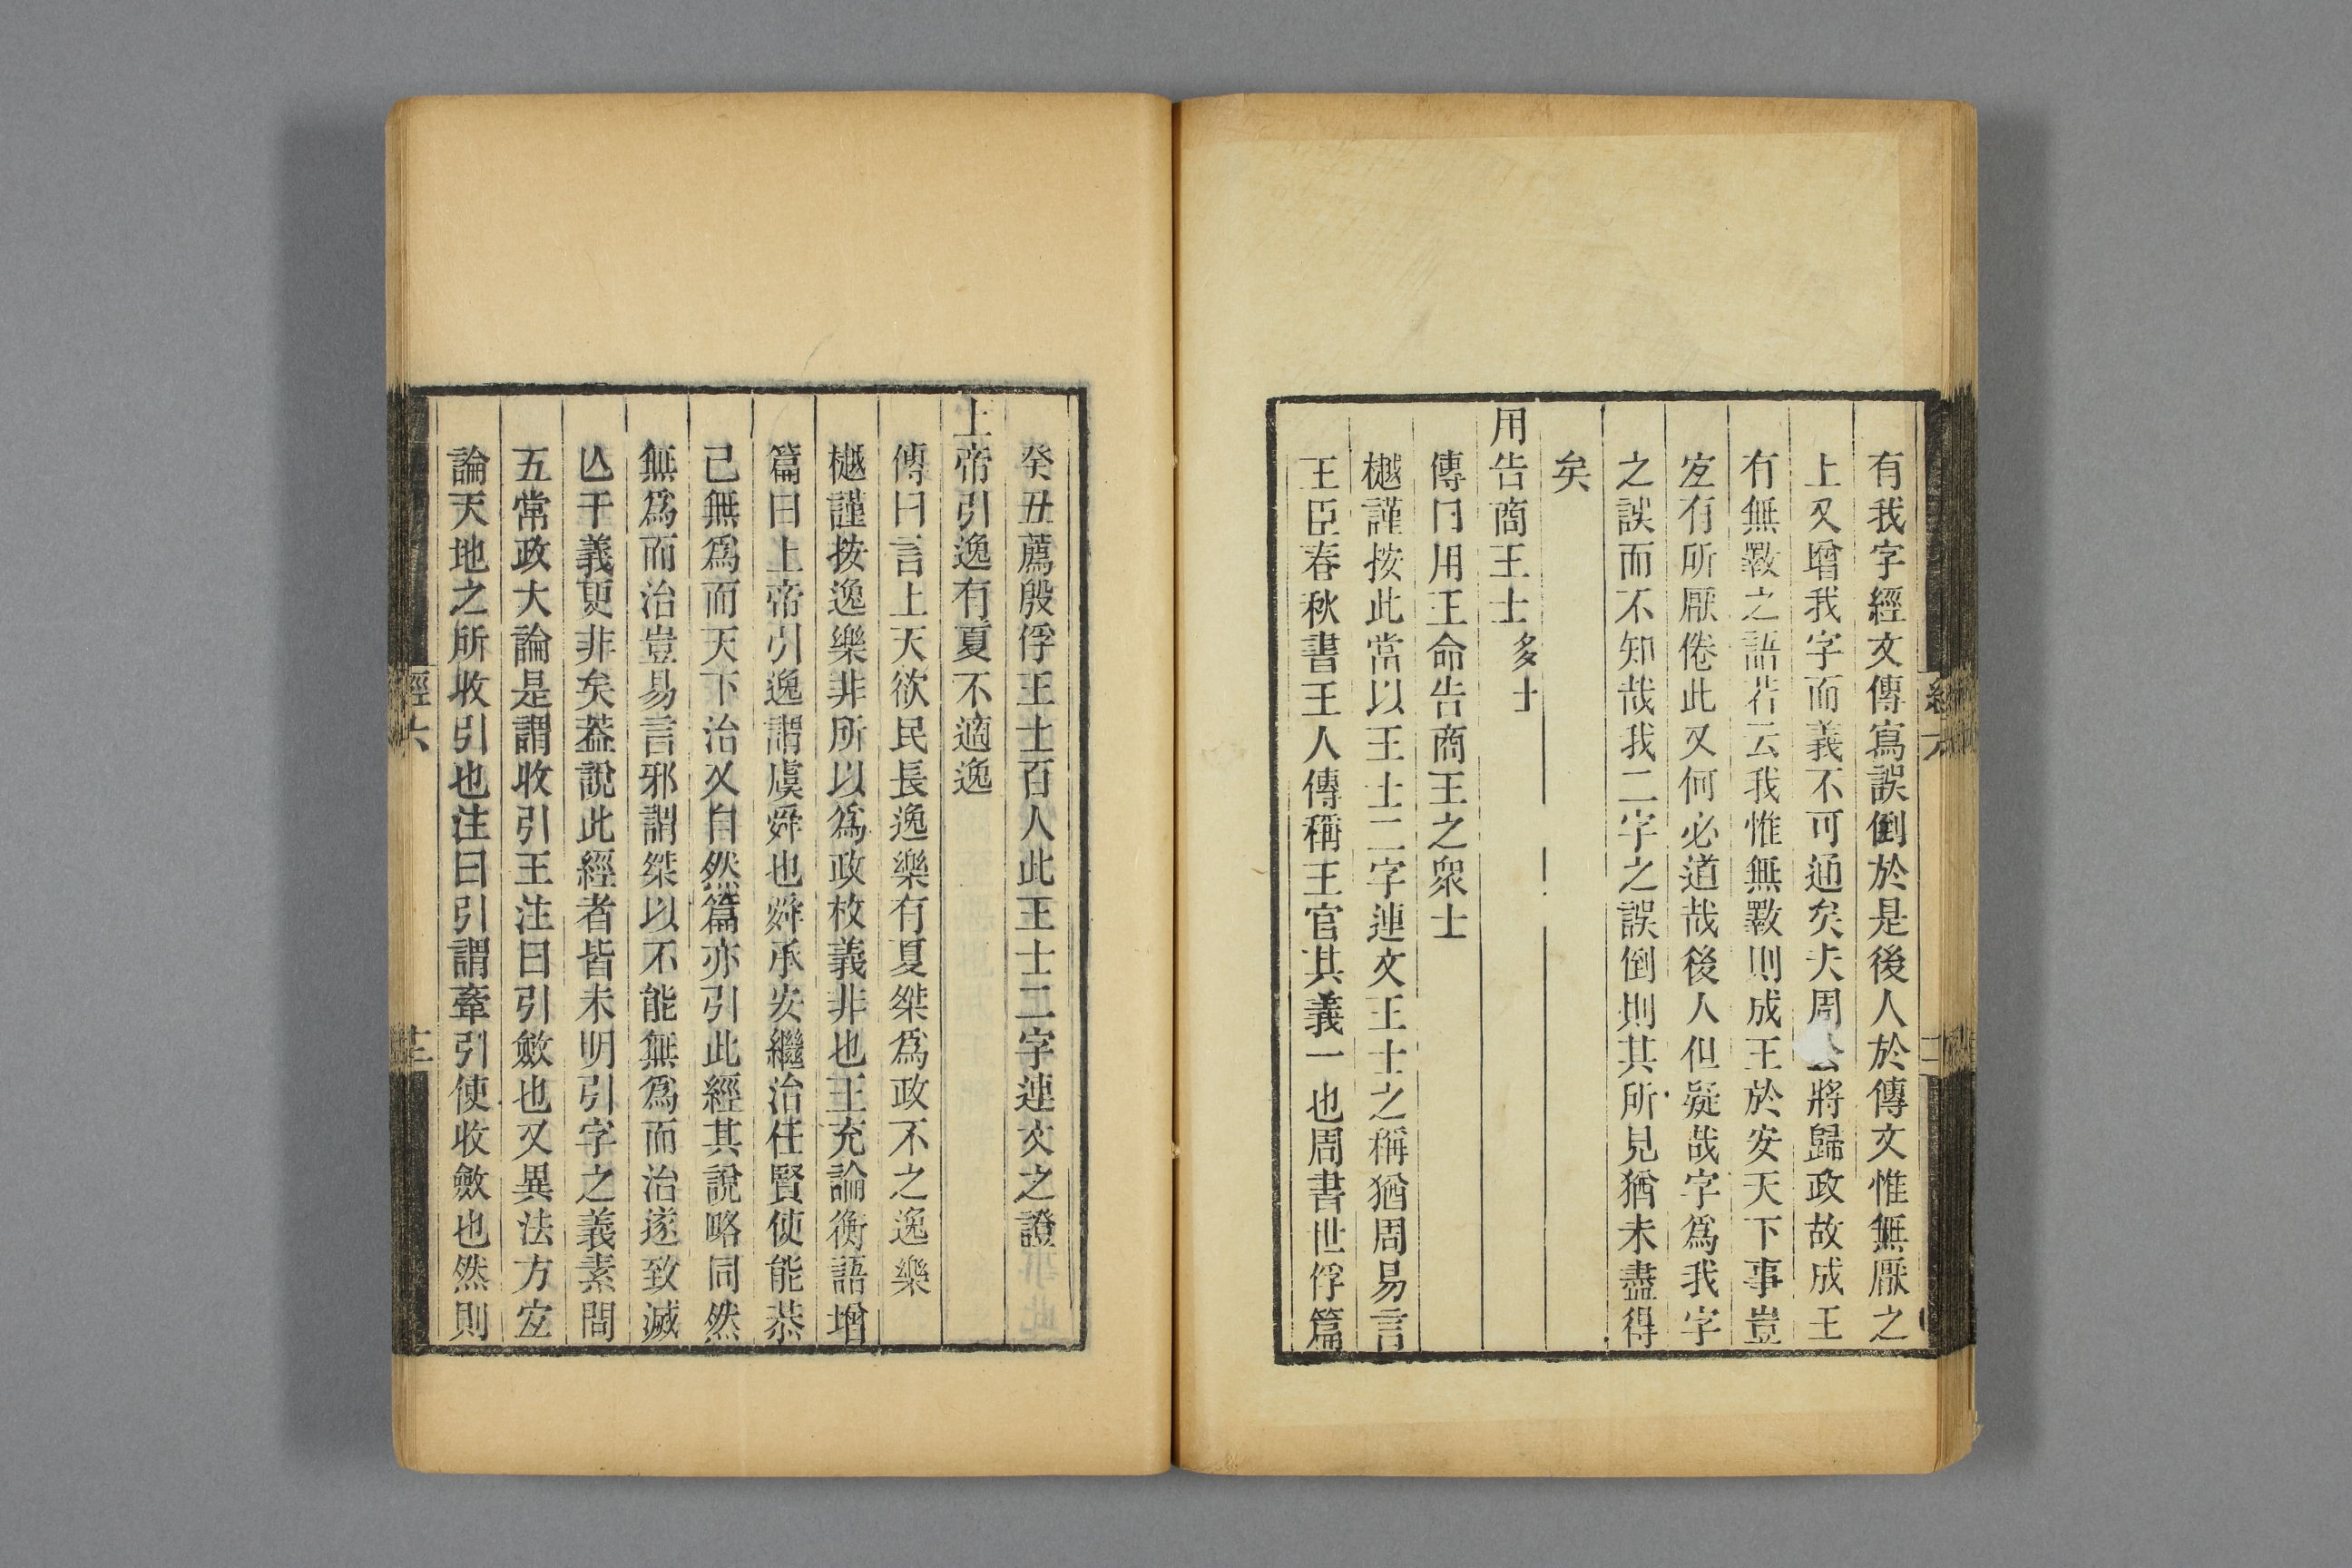 有我字經文傳寫誤倒於是後人於傳文惟無厭之
上又增我字而義不可通矣夫周公將歸政故成王
有無斁之語若云我惟無斁則成王於安天下事豈
宐有所厭倦此又何必道哉後人但疑哉字爲我字
之誤而不知哉我二字之誤倒則其所見猶未盡得
矣
用告商王士多士
傳曰用王命告商王之衆士
樾謹按此當以王士二字連文王士之稱猶周易言
王臣春秋書王人傳稱王官其義一也周書世俘篇
癸丑薦殷俘王士百人此王士二字連文之證
上帝引逸有夏不適逸
傳曰言上天欲民長逸樂有夏桀爲政不之逸樂
樾謹按逸樂非所以爲政枚義非也王充論衡語增
篇曰上帝引逸謂虞舜也舜承安繼治任賢使能恭
己無爲而天下治又自然篇亦引此經其說略同然
無爲而治豈易言邪謂桀以不能無爲而治遂致滅
亾于義更非矣葢說此經者皆未明引字之義素問
五常政大論是謂收引王注曰引斂也又異法方宐
論天地之所收引也注曰引謂牽引使收斂也然則
經六